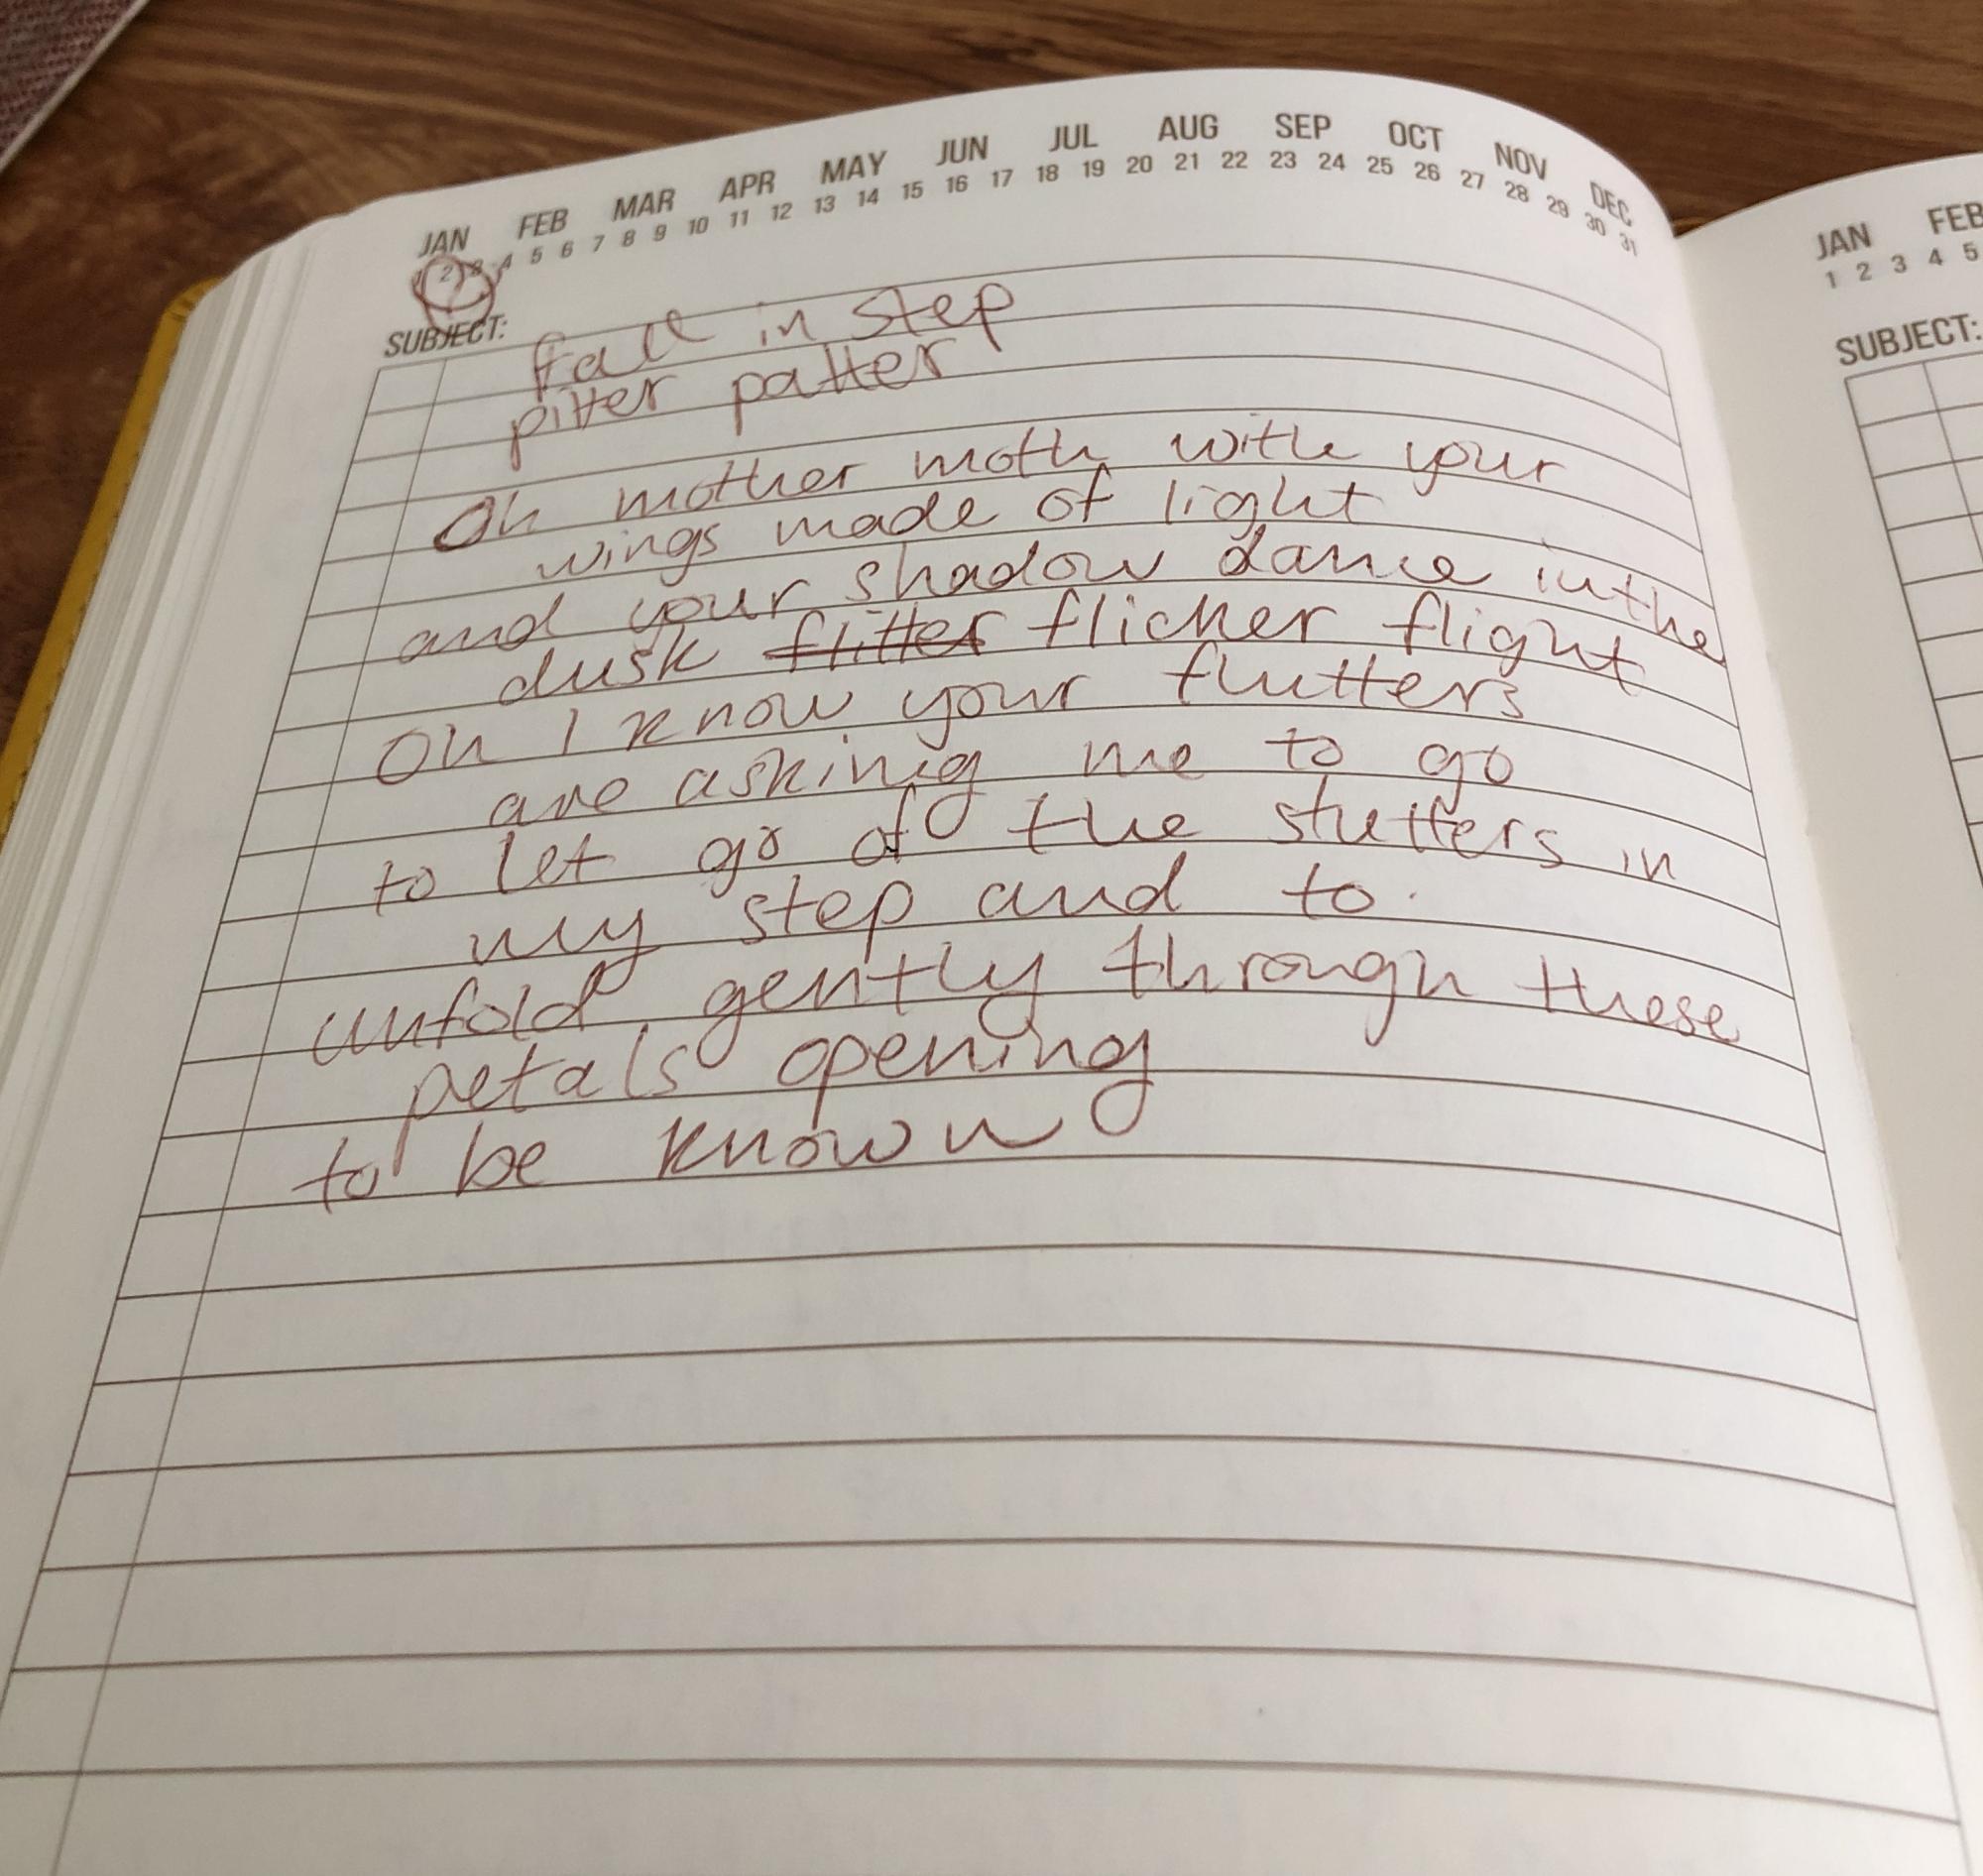 JAN FEB MAR APR MAY JUN JUL AUG SEP OCT NOV DEC
2 3 4 5 6 7 8 9 10 11 12 13 14 15 16 17 18 19 20 21 22 23 24 25 26 27 28 29 30 31
SUBJECT:
fall in step
pitter patter
Oh mother moth with your
wings made of light
and your shadow dance in the
dusk flitter flicker flight
Oh I know your flutters
are asking me to go
to let go of the stutters in
my step and to
unfold gently through these
petals opening
to be known
JAN FEB
1 2 3 4 5
SUBJECT: